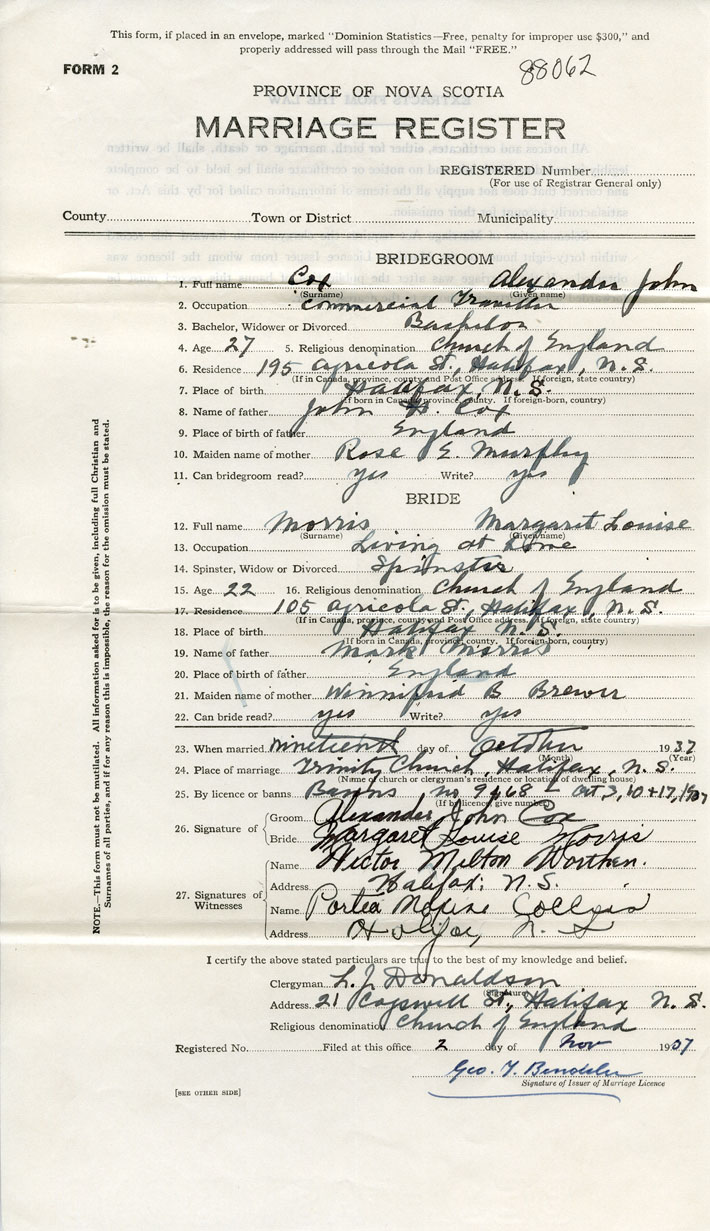 This form, if placed in an envelope, marked "Dominion Statistics—Free, penalty for improper use $300," and
properly addressed will pass through the Mail "FREE."
FORM 2
88062
PROVINCE OF NOVA SCOTIA
MARRIAGE REGISTER
REGISTERED Number
(For use of Registrar General only)
County Town or District Municipality
BRIDEGROOM
1. Full name Cox Alexander John
(Surname) (Given name)
2. Occupation Commercial Traveller
3. Bachelor, Widower or Divorced Bachelor
4. Age 27 5. Religious denomination Church of England
6. Residence 195 Agricola St., Halifax, N.S.
(If in Canada, province, county and Post Office address. If foreign, state country)
7. Place of birth Halifax, N.S.
(If born in Canada, province, county. If foreign-born, country)
8. Name of father John H. Cox
9. Place of birth of father England
10. Maiden name of mother Rose E. Murphy
11. Can bridegroom read? yes Write? yes
BRIDE
12. Full name Morris Margaret Louise
(Surname) (Given name)
13. Occupation Living at home
14. Spinster, Widow or Divorced Spinster
15. Age 22 16. Religious denomination Church of England
17. Residence 105 Agricola St., Halifax, N.S.
(If in Canada, province, county and Post Office address. If foreign, state country)
18. Place of birth Halifax N.S.
(If born in Canada, province, county. If foreign-born, country)
19. Name of father Mark Morris
20. Place of birth of father England
21. Maiden name of mother Winnifred B Brewer
22. Can bride read? yes Write? yes
23. When married nineteenth day of October 1937
(Month) (Year)
24. Place of marriage Trinity Church, Halifax, N.S.
(Name of church or clergyman's residence or location of dwelling house)
25. By licence or banns Banns no 9468 - Oct 3, 10 + 17, 1937
(If by licence, give number)
26. Signature of Groom Alexander John Cox
Bride Margaret Louise Morris
27. Signatures of Witnesses
Name Victor Milton Worthen.
Address Halifax, N.S.
Name Portia Maxine
Address Halifax, N.S
I certify the above stated particulars are true to the best of my knowledge and belief.
Clergyman L. J. Donaldson
(Signature)
Address 21 Cogswell St., Halifax N.S.
Religious denomination Church of England
Registered No. Filed at this office 2 day of Nov 1937
Geo. Y.
Signature of Issuer of Marriage Licence
[SEE OTHER SIDE]
NOTE.—This form must not be mutilated. All information asked for is to be given, including full Christian and
Surnames of all parties, and if for any reason this is impossible, the reason for the omission must be stated.